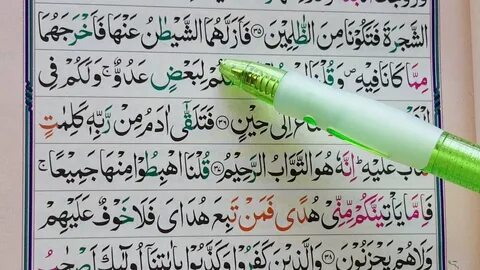 الشَّجَرَةَ فَتَكُوْنَا مِنَ الظّٰلِمِيْنَ ۝۳۵ فَاَزَلَّهُمَا الشَّيْطٰنُ عَنْهَا فَاَخْرَجَهُمَا
مِمَّا كَانَا فِيْهِ ۪ وَقُلْنَا لِبَعْضٍ عَدُوٌّ ۚ وَلَكُمْ فِي
اِلٰى حِيْنٍ ۝۳۶ فَتَلَقّٰٓى اٰدَمُ مِنْ رَّبِّهٖ كَلِمٰتٍ
عَلَيْهِ ؕ اِنَّهٗ هُوَ التَّوَّابُ الرَّحِيْمُ ۝۳۷ قُلْنَا اهْبِطُوْا مِنْهَا جَمِيْعًا ۚ
فَاِمَّا يَاْتِيَنَّكُمْ مِّنِّيْ هُدًى فَمَنْ تَبِعَ هُدَايَ فَلَا خَوْفٌ عَلَيْهِمْ
وَلَا هُمْ يَحْزَنُوْنَ ۝۳۸ وَالَّذِيْنَ كَفَرُوْا وَكَذَّبُوْا بِاٰيٰتِنَآ اُولٰٓئِكَ اَصْحٰبُ